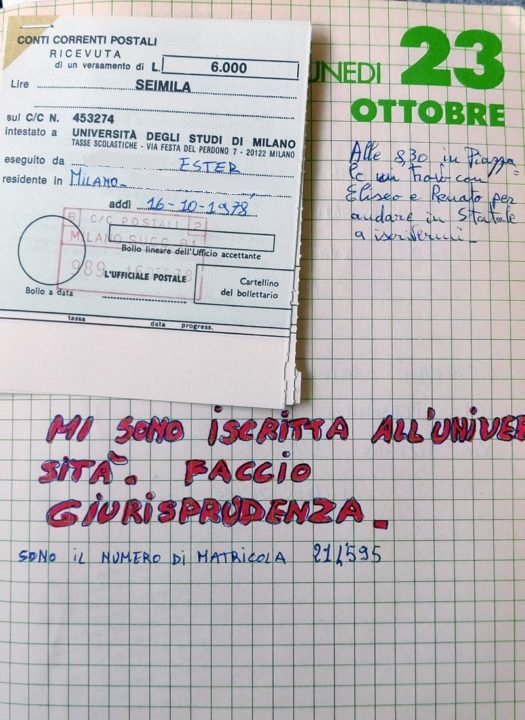 CONTI CORRENTI POSTALI
RICEVUTA
di un versamento di L. 6.000
Lire SEIMILA
sul C/C N. 453274
intestato a UNIVERSITÀ DEGLI STUDI DI MILANO
TASSE SCOLASTICHE - VIA FESTA DEL PERDONO 7 - 20122 MILANO
eseguito da ESTER
residente in MILANO-
addì 16-10-1978
C/C POSTALI 2
MILANO SUCC
989
Bollo lineare dell'Ufficio accettante
L'UFFICIALE POSTALE
Cartellino
del bollettario
Bollo a data
tassa data progress.
UNEDI 23
OTTOBRE
Alle 8,30 in Piazza
le mi trovo con
Eliseo e Renato per
andare in Statale
a iscrivermi-
MI SONO ISCRITTA ALL'UNIVER
SITÀ. FACCIO
GIURISPRUDENZA-
SONO IL NUMERO DI MATRICOLA 214595